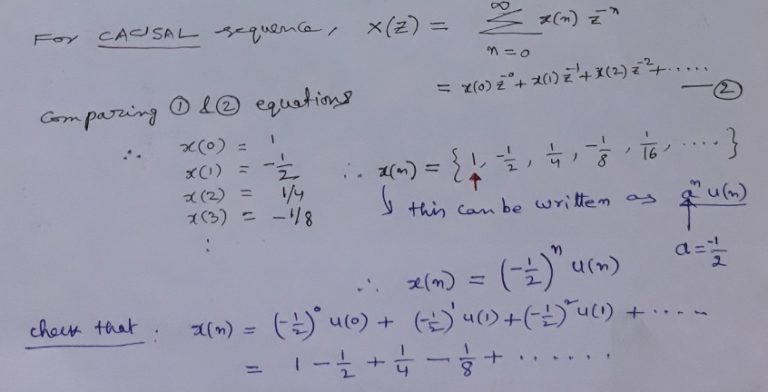 For CAUSAL sequence, X(Z) = ∞ ∑ n=0 x(n) z^-n
= x(0) z^-0 + x(1) z^-1 + x(2) z^-2 + ..... — ②
Comparing ① & ② equations
∴ x(0) = 1
x(1) = -1/2
x(2) = 1/4
x(3) = -1/8
:
∴ x(n) = { 1, -1/2, 1/4, -1/8, 1/16, .... }
↑
↓ this can be written as a^n u(n)
↑
a = -1/2
∴ x(n) = (-1/2)^n u(n)
check that : x(n) = (-1/2)^0 u(0) + (-1/2)^1 u(1) + (-1/2)^2 u(1) + .....
= 1 - 1/2 + 1/4 - 1/8 + ......